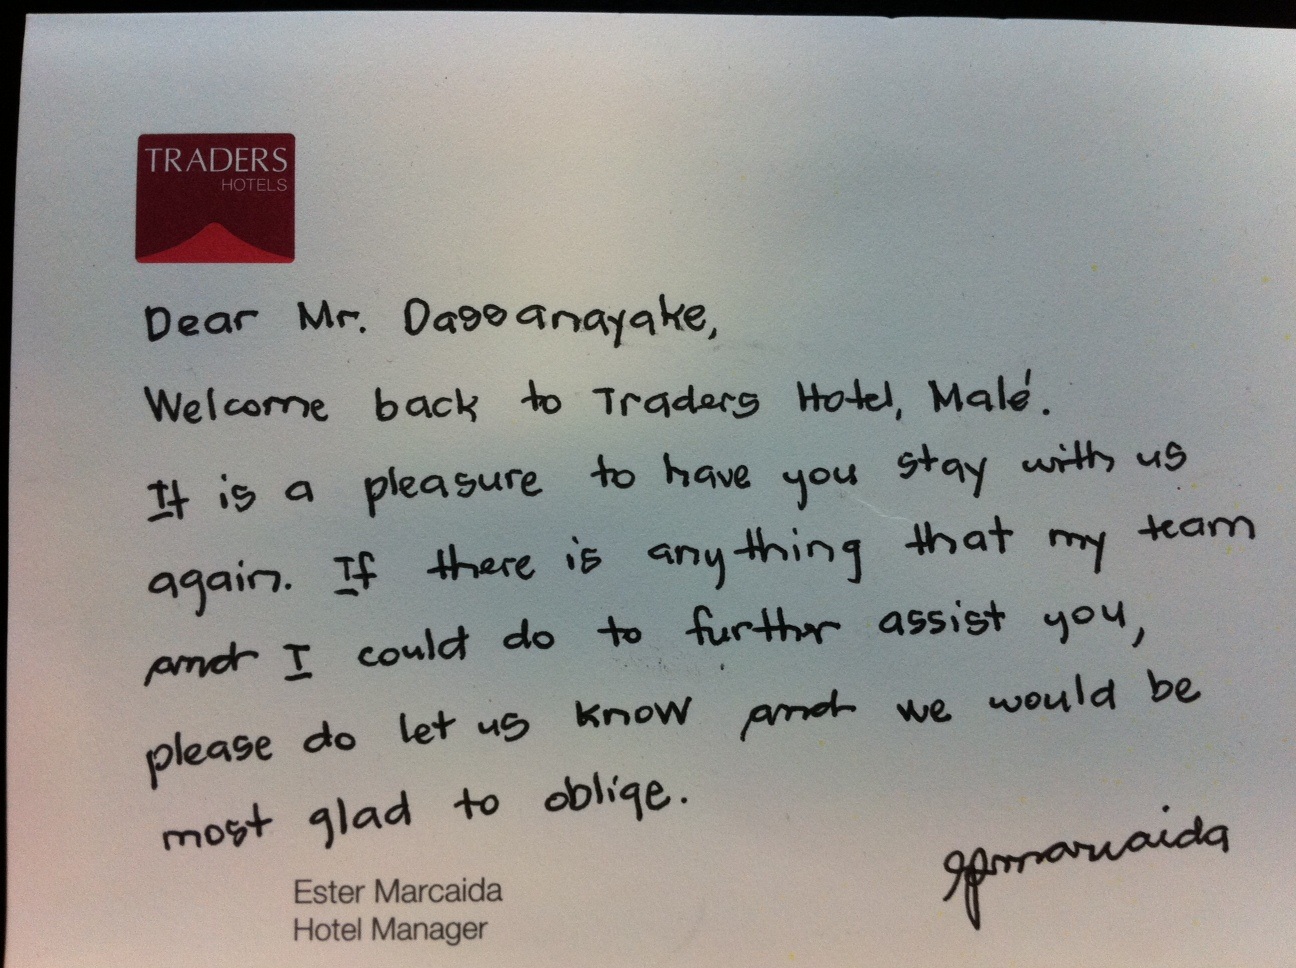 TRADERS
HOTELS
Dear Mr. Dassanayake,
Welcome back to Traders Hotel, Malé.
It is a pleasure to have you stay with us
again. If there is anything that my team
and I could do to further assist you,
please do let us know and we would be
most glad to oblige.
Ester Marcaida
Hotel Manager